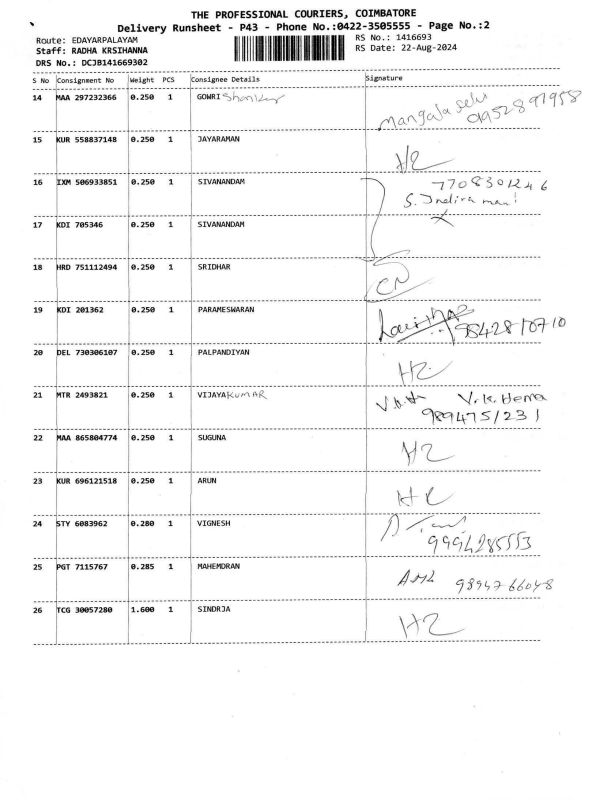 THE PROFESSIONAL COURIERS, COIMBATORE
Delivery Runsheet - P43 - Phone No.:0422-3505555 - Page No.:2
Route: EDAYARPALAYAM RS No.: 1416693
Staff: RADHA KRSIHANNA RS Date: 22-Aug-2024
DRS No.: DCJB141669302
S No Consignment No Weight PCS Consignee Details Signature
14 MAA 297232366 0.250 1 GOWRI Shankar Mangala selvi
15 KUR 558837148 0.250 1 JAYARAMAN H2
16 IXM 506933851 0.250 1 SIVANANDAM 7708301246
S. Indira mani
17 KDI 705346 0.250 1 SIVANANDAM
18 HRD 751112494 0.250 1 SRIDHAR
19 KDI 201362 0.250 1 PARAMESWARAN 9842810710
20 DEL 730306107 0.250 1 PALPANDIYAN H2
21 MTR 2493821 0.250 1 VIJAYAKUMAR V.K. Hema
9894751231
22 MAA 865804774 0.250 1 SUGUNA H2
23 KUR 696121518 0.250 1 ARUN
24 STY 6083962 0.280 1 VIGNESH
9994285553
25 PGT 7115767 0.285 1 MAHEMDRAN 9894766048
26 TCG 30057280 1.600 1 SINDRJA H2